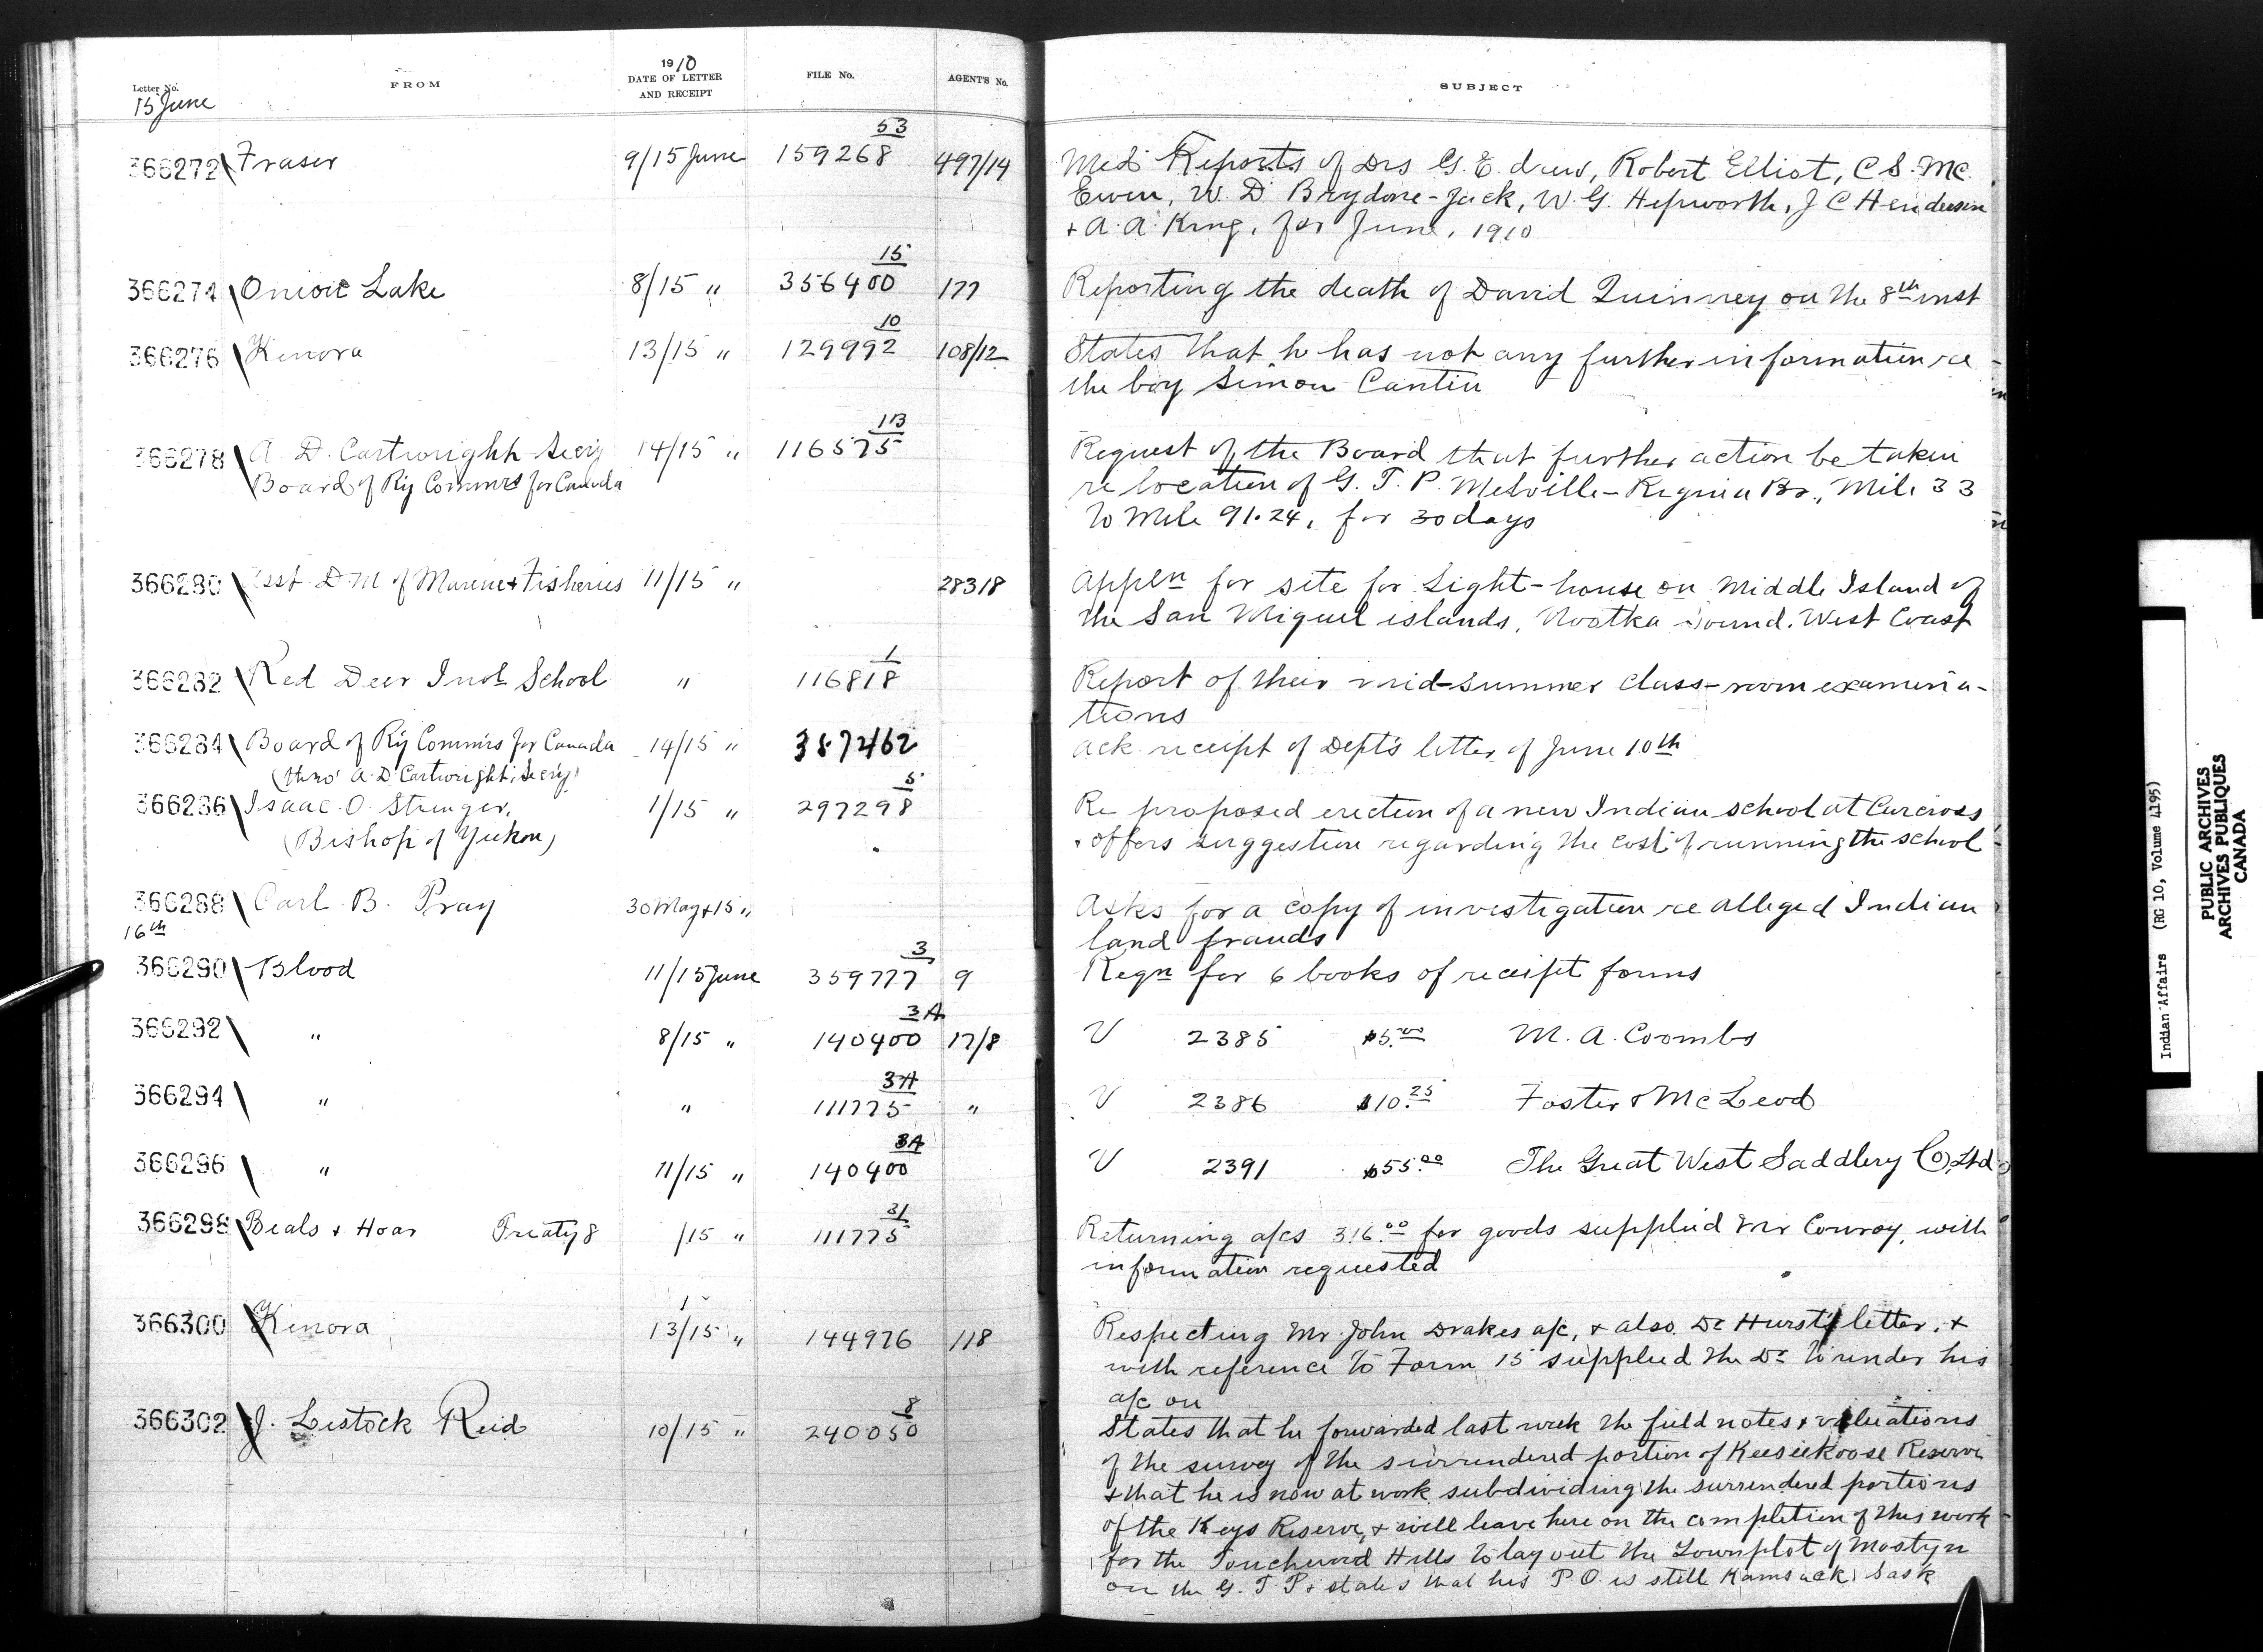 Letter No. FROM 1910 DATE OF LETTER AND RECEIPT FILE No. AGENT'S No. SUBJECT
15 June
366272 Fraser 9/15 June 159268 53 497/14 Med Reports of Drs G. E. drew, Robert Elliot, C S. Mc
Ewen, W. D Brydone-Jack, W. G. Hepworth, J C Henderson
+ A. A. King, for June, 1910
366274 Onion Lake 8/15 " 356400 15 177 Reporting the death of David Quinney on the 8th inst
366276 Kenora 13/15 " 129992 10 108/12 States that h has not any further information re
the boy Simon Cantin
366278 A. D. Cartwright Secy 14/15 " 116575 113 Request of the Board that further action be taken
Board of Ry Commrs for Canada re location of G. T. P. Melville-Regina Br., Mile 33
to Mile 91.24, for 30 days
366280 Asst D M of Marine + Fisheries 11/15 " 28318 Appln for site for Light-house on Middle Island of
the San Miguel islands, Nootka Sound. West Coast
366282 Red Deer Indl School " 116818 1 Report of their mid-summer class-room examina-
tions
366284 Board of Ry Commrs for Canada 14/15 " 387462 ack receipt of Dept's letter of June 10th
(thro' A. D Cartwright, Secy)
366286 Isaac O. Stringer, 1/15 " 297298 5 Re proposed erection of a new Indian school at Carcross
(Bishop of Yukon) + offers suggestion regarding the cost of running the school
366288 Carl B. Pray 30 May + 15 " Asks for a copy of investigation re alleged Indian
land frauds
16th
366290 Blood 11/15 June 359777 3 9 Reqn for 6 books of receipt forms
366292 " 8/15 " 140400 3A 17/8 V 2385 $5.00 M. A. Coombs
366294 " " 111775 3A " V 2386 $10.25 Foster & McLeod
366296 " 11/15 " 140400 3A V 2391 $55.00 The Great West Saddlery Co, Ltd
366298 Beals + Hoar Treaty 8 /15 " 111775 31 Returning a/cs 316.00 for goods supplied Mr Conroy, with
information requested
366300 Kenora 13/15 " 144976 118 Respecting Mr. John Drakes a/c, + also Dr Hurst's letter, +
with reference to Form 15 supplied the Dr to render his
a/c on
366302 J. Lestock Reid 10/15 " 240050 8 States that he forwarded last week the field notes + valuations
of the survey of the surrendered portion of Keeseekoose Reserve
+ that he is now at work subdividing the surrendered portions
of the Keys Reserve, + will leave here on the completion of this work
for the Touchwood Hills to lay out the Townplot of Mostyn
on the G. T. P + states that his P O is still Kamsack Sask
Indian Affairs (RG 10, Volume 4195)
PUBLIC ARCHIVES
ARCHIVES PUBLIQUES
CANADA